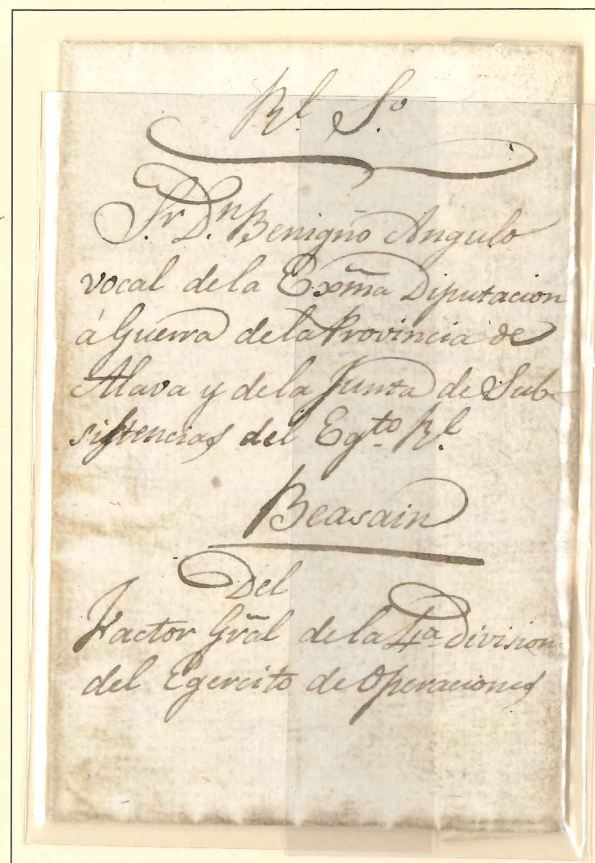 Rl. So.
Sr. Dn. Benigno Angulo
vocal de la Exma Diputacion
á Guerra de la Provincia de
Alava y de la Junta de Sub-
sistencias del Egto. Rl.
Beasain
Del
Factor Gral de la 4a. Division
del Egercito de Operaciones